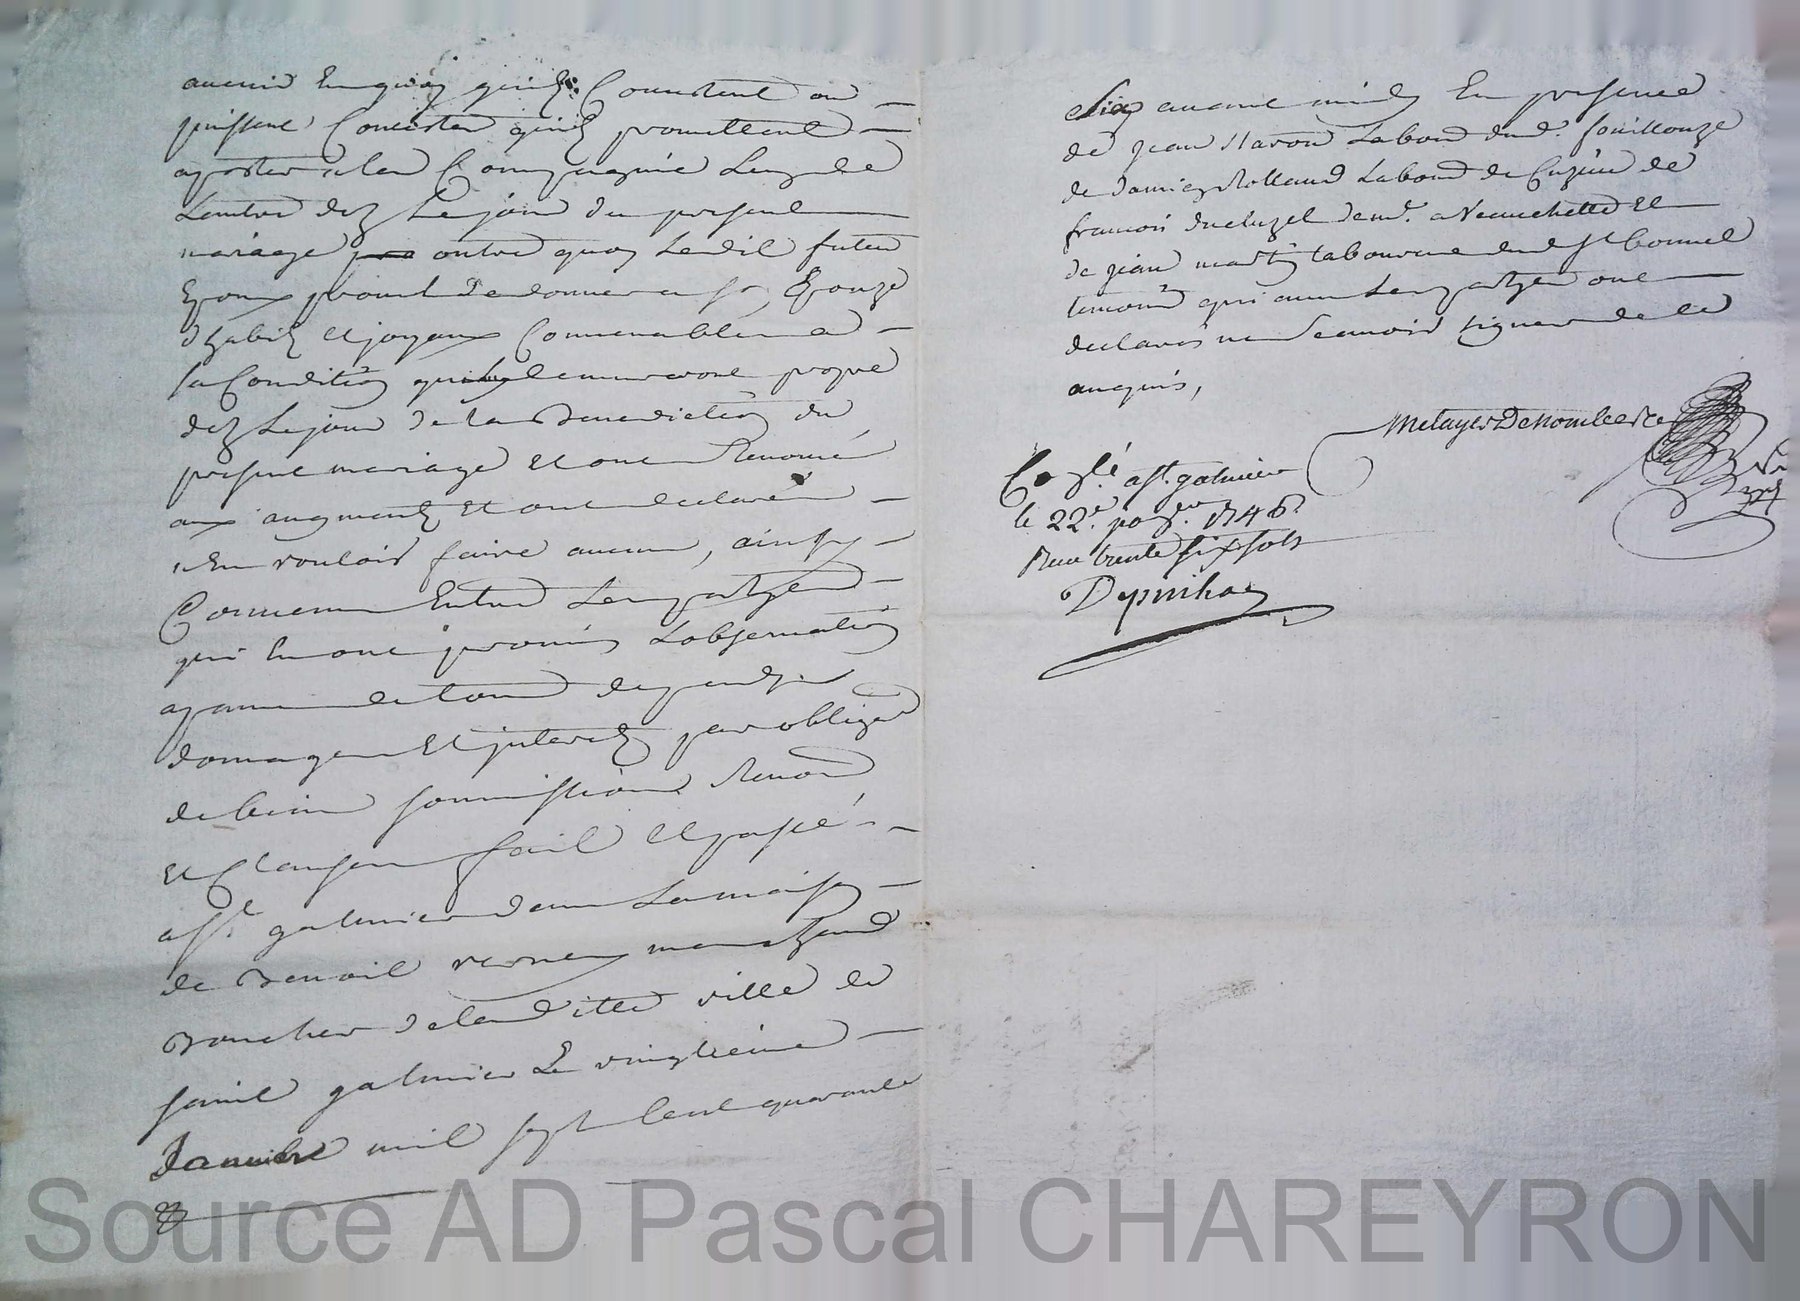 avenir En quoy qu'ils Consistent ou
puissent Concister qu'ils promettent
aporter a leur Compagnie Lung de
Lautre dez Le jour du present
mariage outre quoy Ledit futur
Epoux promet de donner a sa Epouze
d'habits et joyaux Convenables a
sa Condition qui luy demeureront propre
dez Le jour de la Benediction du
present mariage Et ont Renoncé
aux augments Et ont declaré
n'En vouloir faire aucun, ainsy
Convenu Entre Les parties
qui En ont promis Lobservation
a peine de tous despens
domages Et interets par obligon
de biens soumissions Renon
et Clauses fait Et passé
a St galmier dans La maison
de Benoit verney marchand
Boucher de laditte ville de
saint galmier Le vingtieme
Janvier mil sept Cent quarante
Six avant midy En presence
de jean Labour dud. fouillouze
de damien Rolland Labour de Cuzieu de
francois ducluzel demt. a Veauchette Et
de jean martin labour dud St bonnet
temoins qui avec Les parties ont
declarés ne Scavoir signer de ce
enquis,
Metayer Denombre
Col. a St. galmier
le 22e. janer. 1746.
Reçu trente six sols
Depinhac
Source AD Pascal CHAREYRON